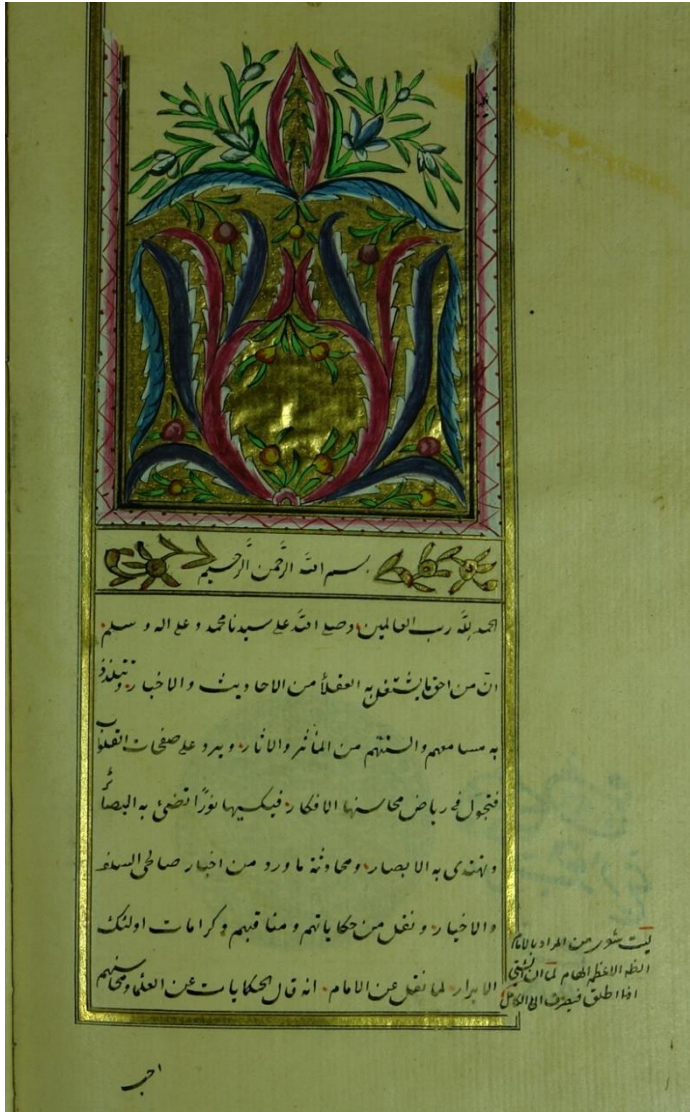 بسم الله الرَّحمن الرَّحيم
الحمد لِلّه رب العالمين وصلى الله على سيدنا محمد وعلى اله وسلم
انّ من احق ما يشتغل به العقلاء من الاحاديث والاخبار وتتلذذ
به مسامعهم والسنتهم من المأثر والاثار ويرد على صفحات القلوب
فتجول فى رياض محاسنها الافكار فيكسيها نورًا تضئ به البصائر
وتهتدى به الابصار ومحادثة ما ورد من اخبار صالحى السلف
والاخيار ونقل من حكاياتهم ومناقبهم وكرامات اولئك
الابرار لما نقل عن الامام انه قال الحكايات عن العلماء ومحاسنهم
من المراد بالامام
الاعظم الهمام لما ان الشئ
اذا اطلق فيصرف الى الكامل
احب